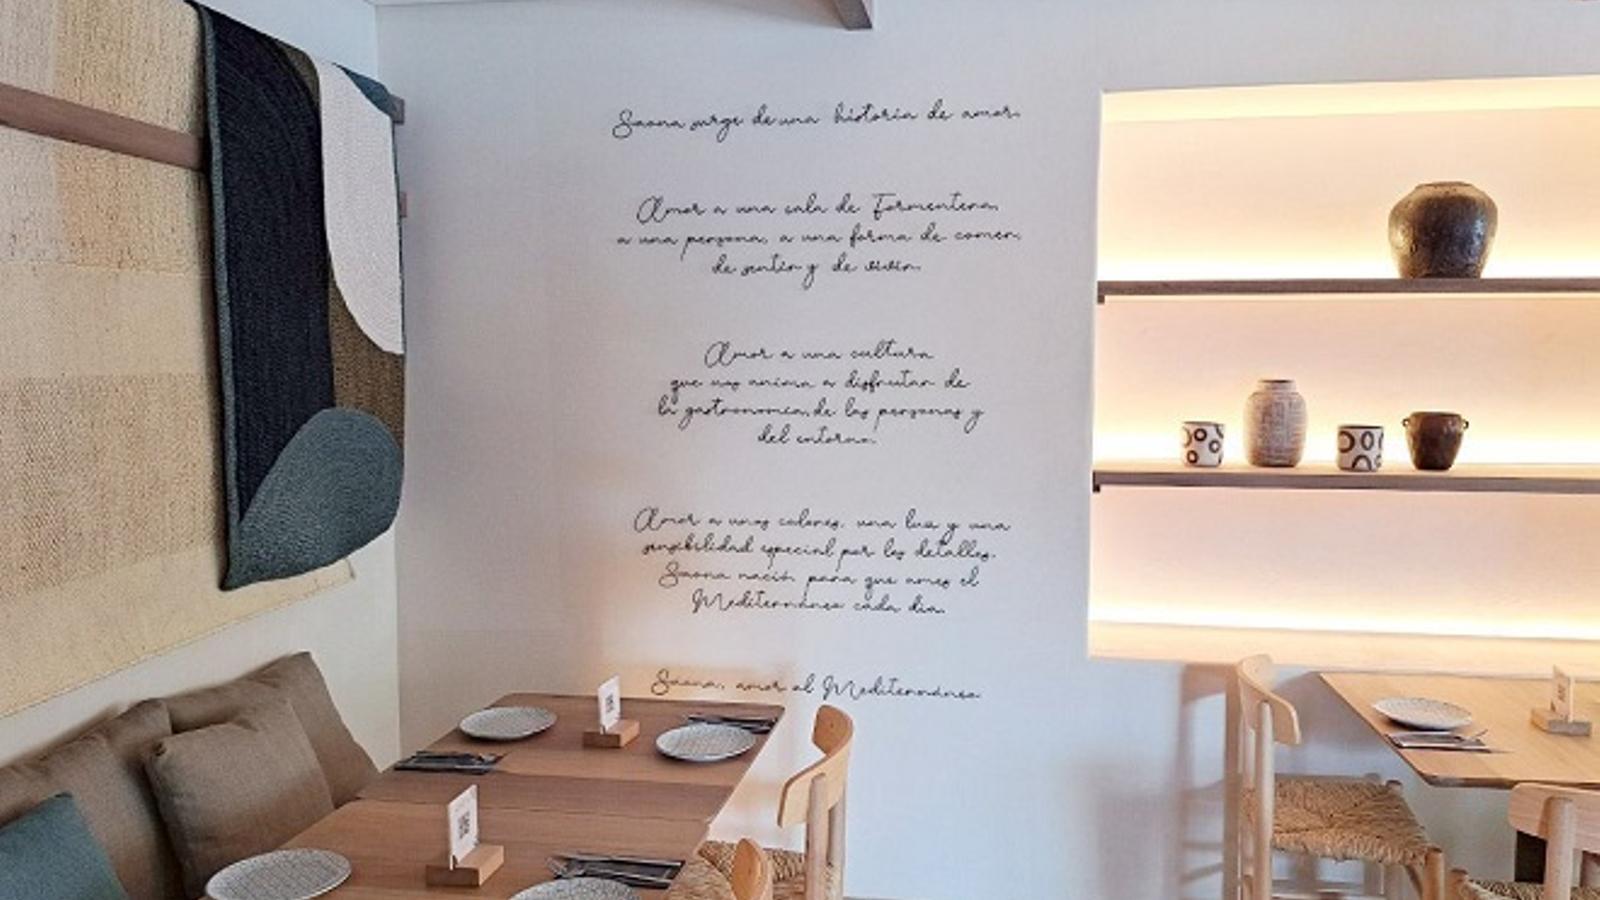 Saona surge de una historia de amor.
Amor a una cala de Formentera,
a una persona, a una forma de comer,
de sentir y de vivir.
Amor a una cultura
que nos anima a disfrutar de
la gastronomía, de las personas y
del entorno.
Amor a unos colores, una luz y una
sensibilidad especial por los detalles.
Saona nació para que ames el
Mediterráneo cada día.
Saona, amor al Mediterráneo